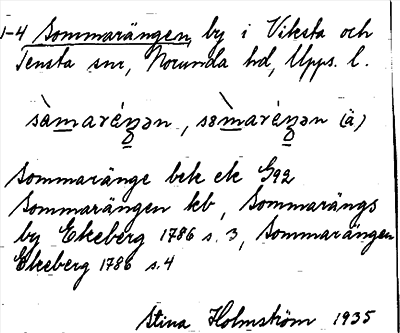 1-4 Sommarängen, by i Viksta och
Tensta snr, Norunda hd, Upps. l.
sàmaréŋən, səmaréŋən (ä)
Sommaränge bek ek G92
Sommarängen kb, Sommarängs
by Ekeberg 1786 s. 3, Sommarängen
Ekeberg 1786 s. 4
Stina Holmström 1935